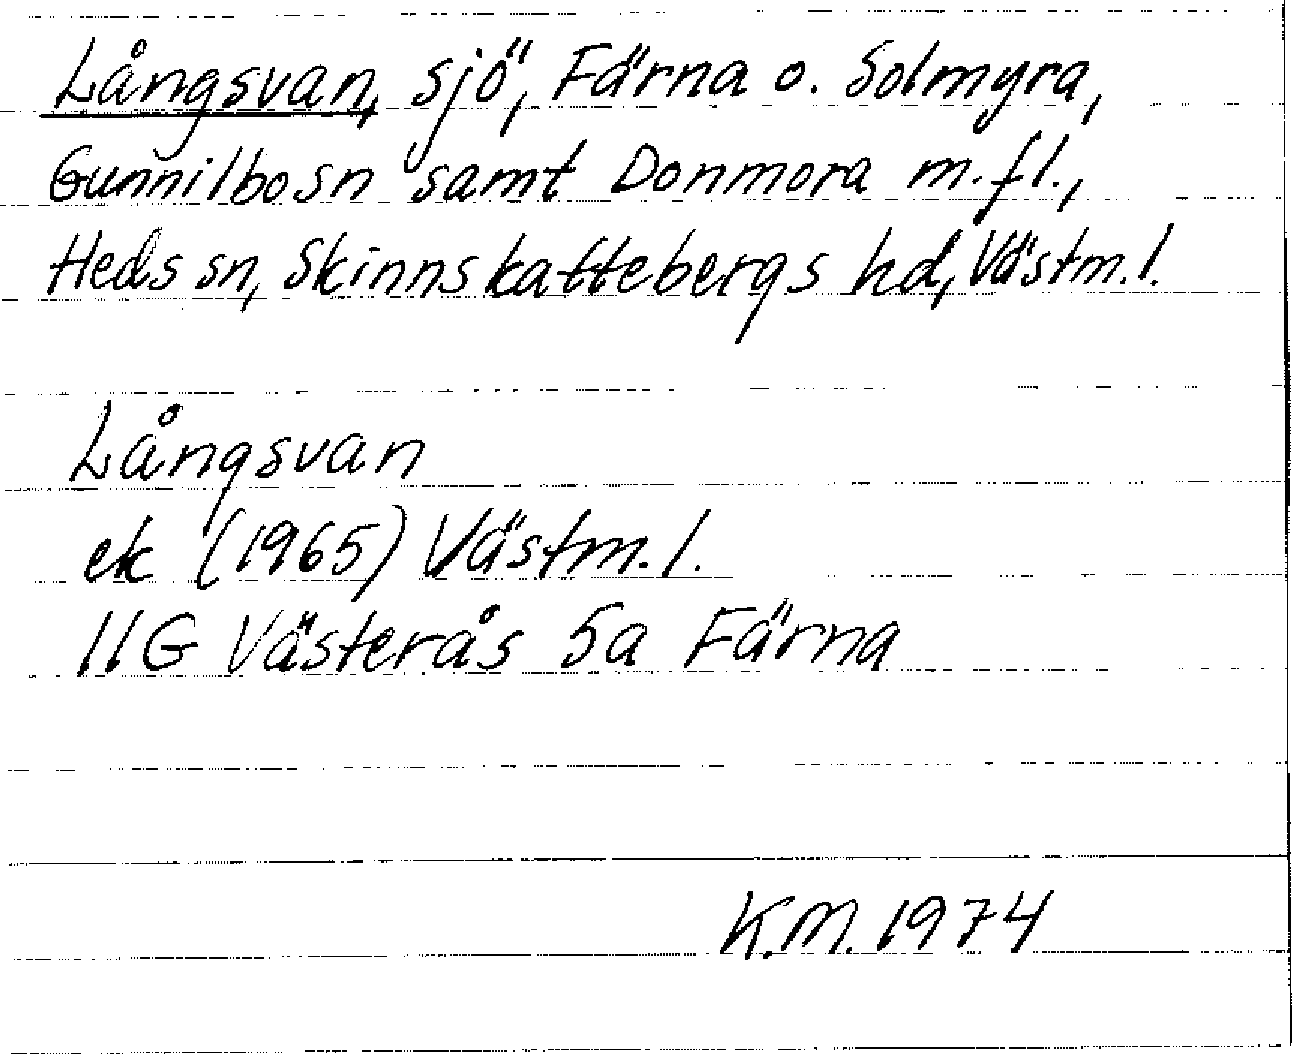 Långsvan, sjö, Färna o. Solmyra,
Gunnilbo sn samt Donmora m.fl.,
Heds sn, Skinnskattebergs hd, Västm.l.
Långsvan
ek (1965) Västm.l.
11G Västerås 5a Färna
K.M. 1974